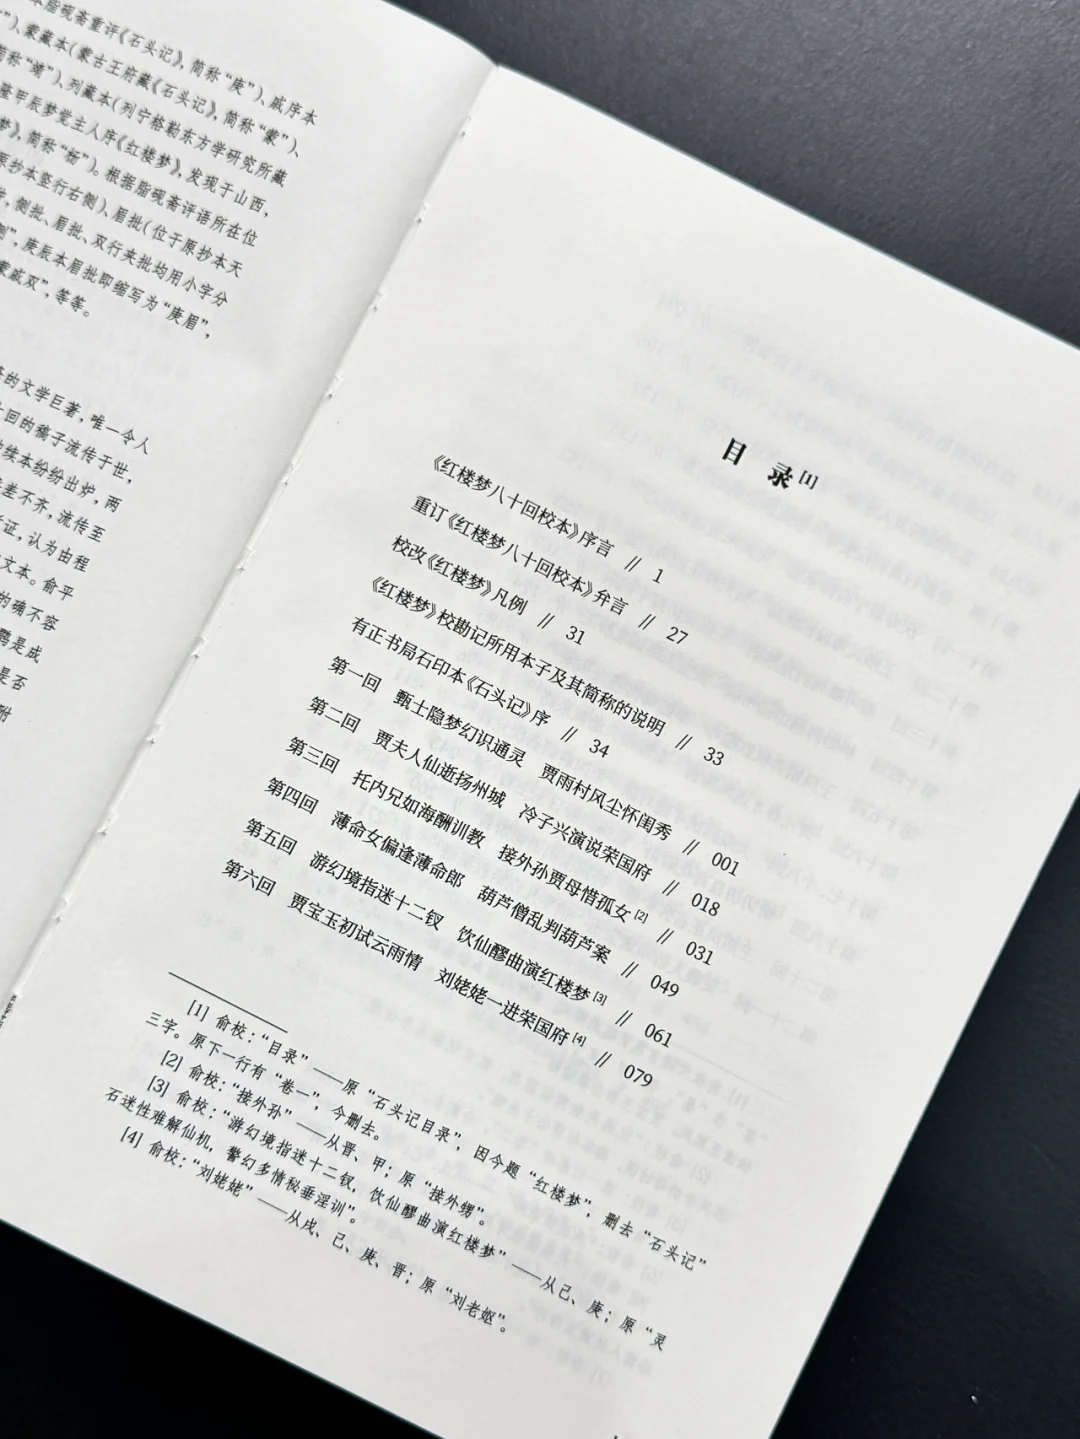 本脂砚斋重评《石头记》，简称“庚”）、戚序本
”）、蒙藏本（蒙古王府藏《石头记》，简称“蒙”）、
简称“靖”）、列藏本（列宁格勒东方学研究所藏
隆甲辰梦觉主人序《红楼梦》，发现于山西，
梦》，简称“杨”）。根据脂砚斋评语所在位
原抄本竖行右侧）、眉批（位于原抄本天
，侧批、眉批、双行夹批均用小字分
侧”，庚辰本眉批即缩写为“庚眉”，
蒙戚双”，等等。
的文学巨著，唯一令人
十回的稿子流传于世，
续本纷纷出炉，两
差不齐，流传至
证，认为由程
文本。俞平
的确不容
鹗是成
是否
附
目 录[1]
《红楼梦八十回校本》序言 // 1
重订《红楼梦八十回校本》弁言 // 27
校改《红楼梦》凡例 // 31
《红楼梦》校勘记所用本子及其简称的说明 // 33
有正书局石印本《石头记》序 // 34
第一回 甄士隐梦幻识通灵 贾雨村风尘怀闺秀 // 001
第二回 贾夫人仙逝扬州城 冷子兴演说荣国府 // 018
第三回 托内兄如海酬训教 接外孙贾母惜孤女[2] // 031
第四回 薄命女偏逢薄命郎 葫芦僧乱判葫芦案 // 049
第五回 游幻境指迷十二钗 饮仙醪曲演红楼梦[3] // 061
第六回 贾宝玉初试云雨情 刘姥姥一进荣国府[4] // 079
[1] 俞校：“目录”——原“石头记目录”，因今题“红楼梦”，删去“石头记”
三字。原下一行有“卷一”，今删去。
[2] 俞校：“接外孙”——从晋、甲；原“接外甥”。
[3] 俞校：“游幻境指迷十二钗，饮仙醪曲演红楼梦”——从己、庚；原“灵
石迷性难解仙机，警幻多情秘垂淫训”。
[4] 俞校：“刘姥姥”——从戌、己、庚、晋；原“刘老妪”。